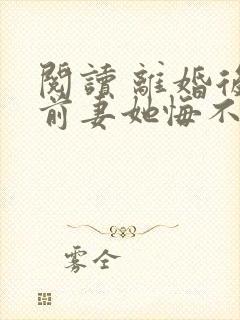 閱讀 離婚後
前妻她悔不
雾全